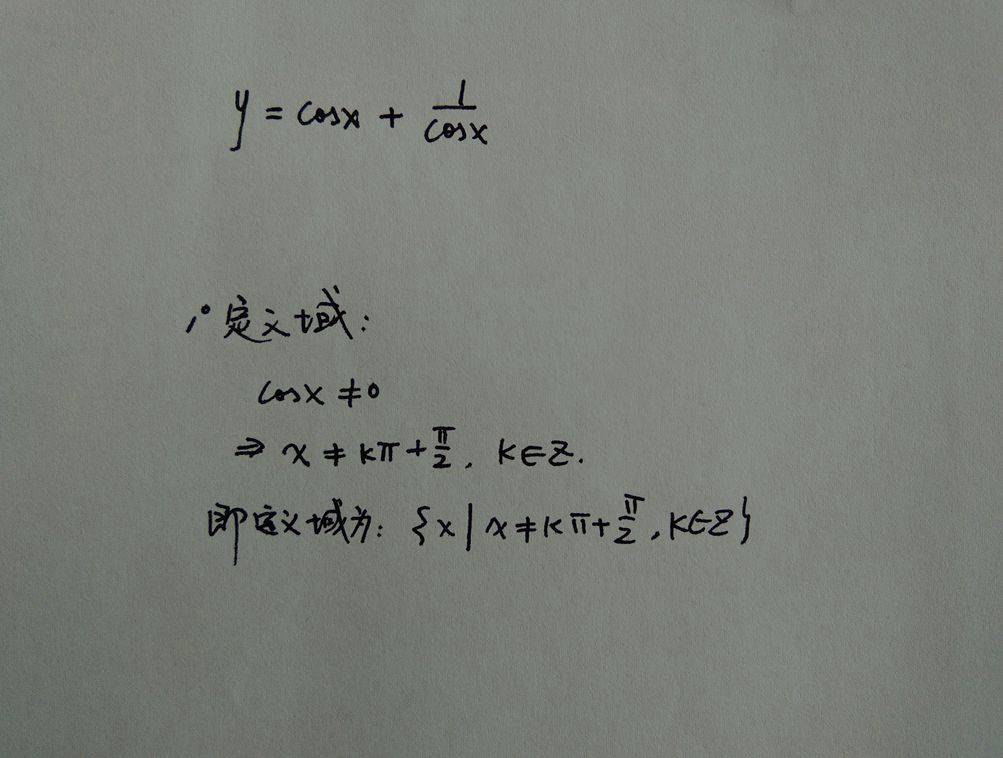 y = cosx + 1/cosx
1° 定义域:
cosx ≠ 0
⇒ x ≠ kπ + π/2, k∈Z.
即定义域为: {x | x ≠ kπ + π/2, k∈Z}